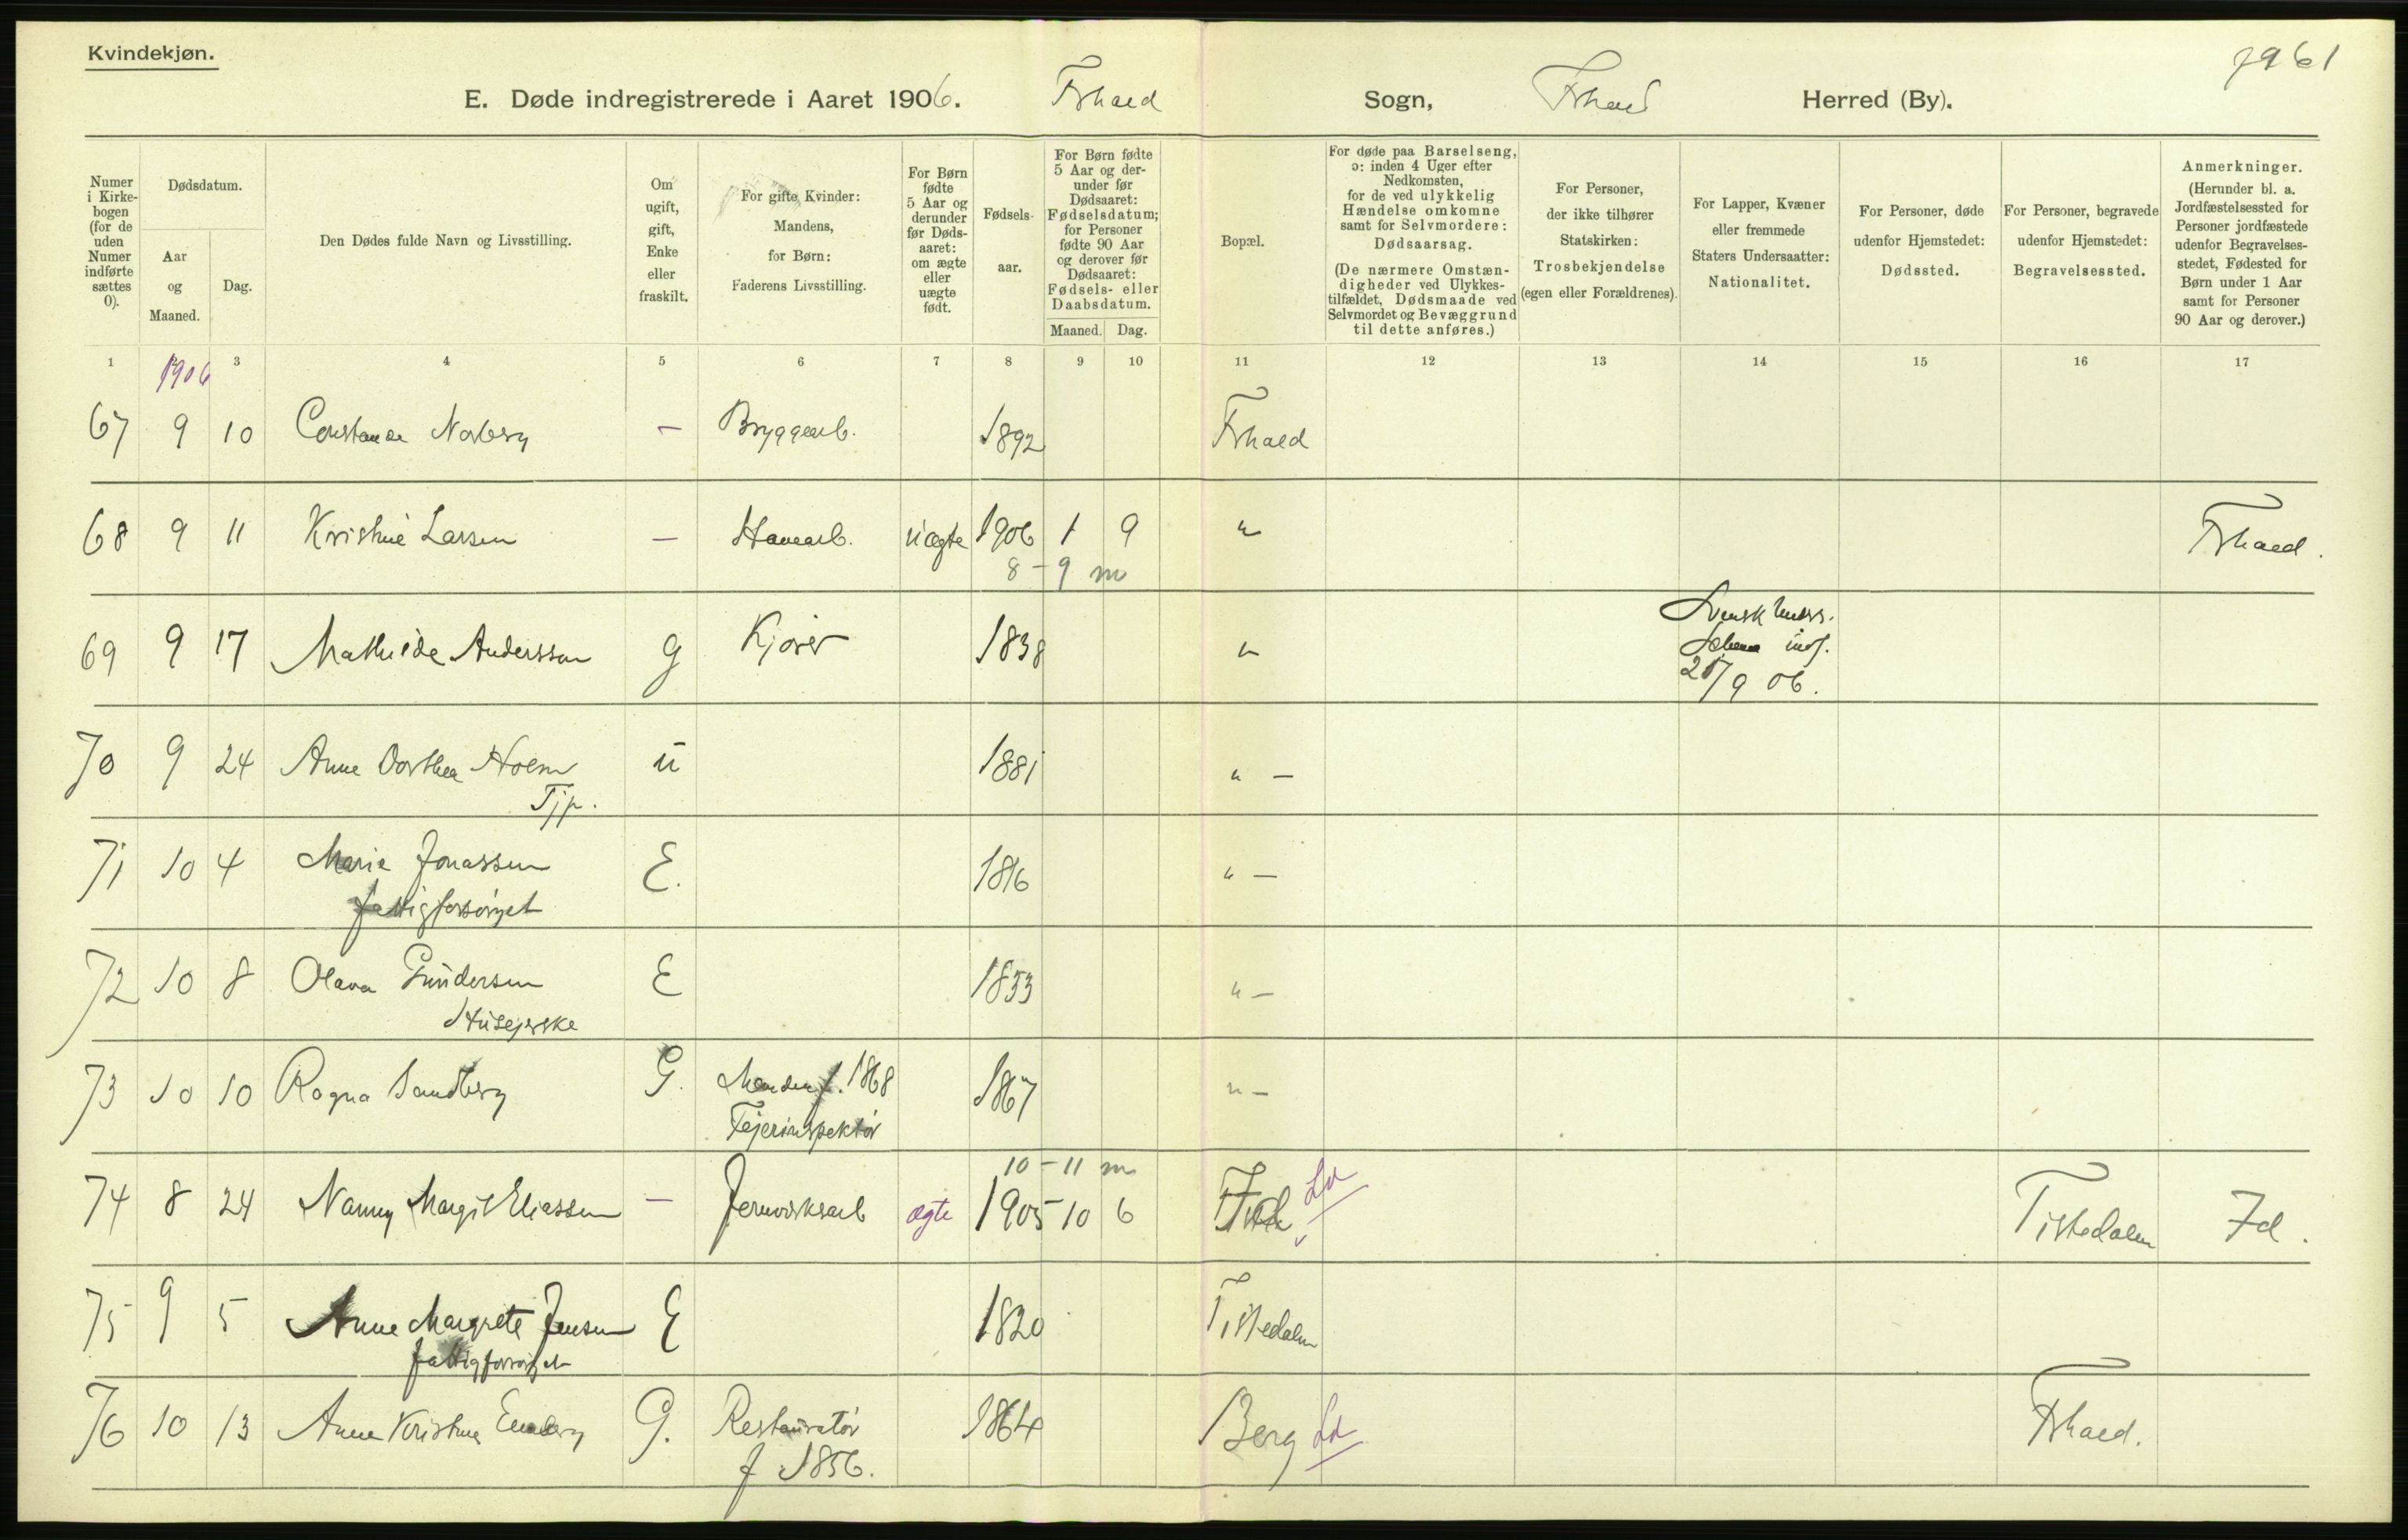 Kvindekjøn.
7961
E. Døde indregistrerede i Aaret 1906. Frhald Sogn, Frhald Herred (By).
Numer i Kirkebogen (for de uden Numer indførte sættes 0).
Dødsdatum.
Aar og Maaned.
Dag.
Den Dødes fulde Navn og Livsstilling.
Om ugift, gift, Enke eller fraskilt.
For gifte Kvinder: Mandens, for Børn: Faderens Livsstilling.
For Børn fødte 5 Aar og derunder før Dødsaaret: om ægte eller uægte født.
Fødselsaar.
For Børn fødte 5 Aar og derunder før Dødsaaret: Fødselsdatum; for Personer fødte 90 Aar og derover før Dødsaaret: Fødsels- eller Daabsdatum.
Maaned. Dag.
Bopæl.
For døde paa Barselseng, ɔ: inden 4 Uger efter Nedkomsten, for de ved ulykkelig Hændelse omkomne samt for Selvmordere: Dødsaarsag.
(De nærmere Omstændigheder ved Ulykkestilfældet, Dødsmaade ved Selvmordet og Bevæggrund til dette anføres.)
For Personer, der ikke tilhører Statskirken: Trosbekjendelse (egen eller Forældrenes).
For Lapper, Kvæner eller fremmede Staters Undersaatter: Nationalitet.
For Personer, døde udenfor Hjemstedet: Dødssted.
For Personer, begravede udenfor Hjemstedet: Begravelsessted.
Anmerkninger.
(Herunder bl. a. Jordfæstelsessted for Personer jordfæstede udenfor Begravelsesstedet, Fødested for Børn under 1 Aar samt for Personer 90 Aar og derover.)
1 1906 3 4 5 6 7 8 9 10 11 12 13 14 15 16 17
67 9 10 Constanse Norberg — Bryggearb. 1892 Frhald
68 9 11 Kristine Larsen — Havearb. uægte 1906 1 9 " Frhald.
8-9 m
69 9 17 Mathilde Andersson g Kjører 1838 "
Svensk Unders.
Schema inds.
9 06.
70 9 24 Anne Dorthea Holm u 1881 " —
Tjp.
71 10 4 Marie Jonassen E. 1816 " —
fattigforsørget
72 10 8 Olava Gundersen E 1833 " —
Husejerske
73 10 10 Ragna Sandberg G. Manden f. 1868 1867 " —
Fejerinspektør
10-11 m
74 8 24 Nanny Margit Eliassen — Jernverksarb ægte 1905 10 6 Ld Tistedalen Id.
75 9 5 Anne Margrete Jensen E 1820 Tistedalen
fattigforsørget
76 10 13 Anne Kristine G. Restauratør 1864 Berg Ld Frhald.
f 1856.